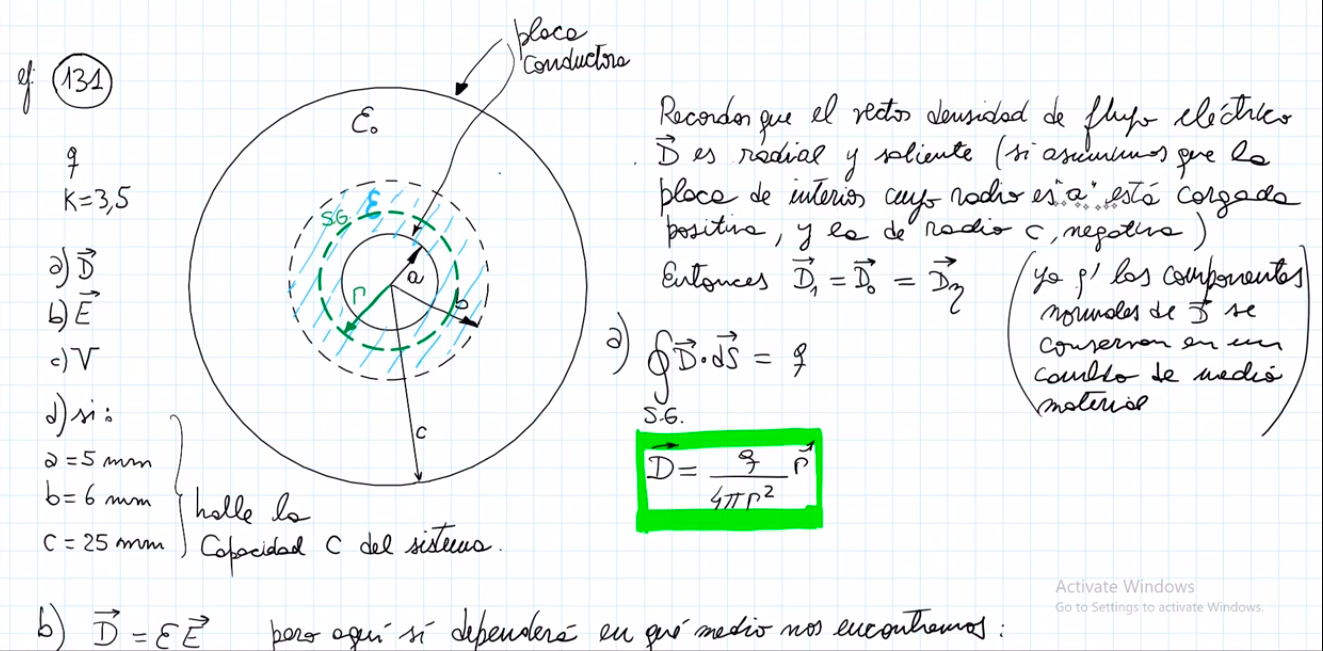 placa
conductora
ej: 131
q
K=3,5
a) D⃗
b) E⃗
c) V
d) si:
a = 5 mm
b = 6 mm
c = 25 mm
halle la
Capacidad C del sistema.
ε₀
S.G.
ε
a
r
b
c
Recordar que el vector densidad de flujo eléctrico
D⃗ es radial y saliente (si asumimos que la
placa de interior cuyo radio es "a" está cargada
positiva, y la de radio c, negativa)
Entonces D⃗₁ = D⃗₀ = D⃗η
(ya q' las componentes
normales de D⃗ se
conservan en un
cambio de medio
material)
a) ∮ D⃗ · dS⃗ = q
S.G.
D⃗ = q / 4πr² r⃗
b) D⃗ = εE⃗ pero aquí sí dependerá en qué medio nos encontremos:
Activate Windows
Go to Settings to activate Windows.